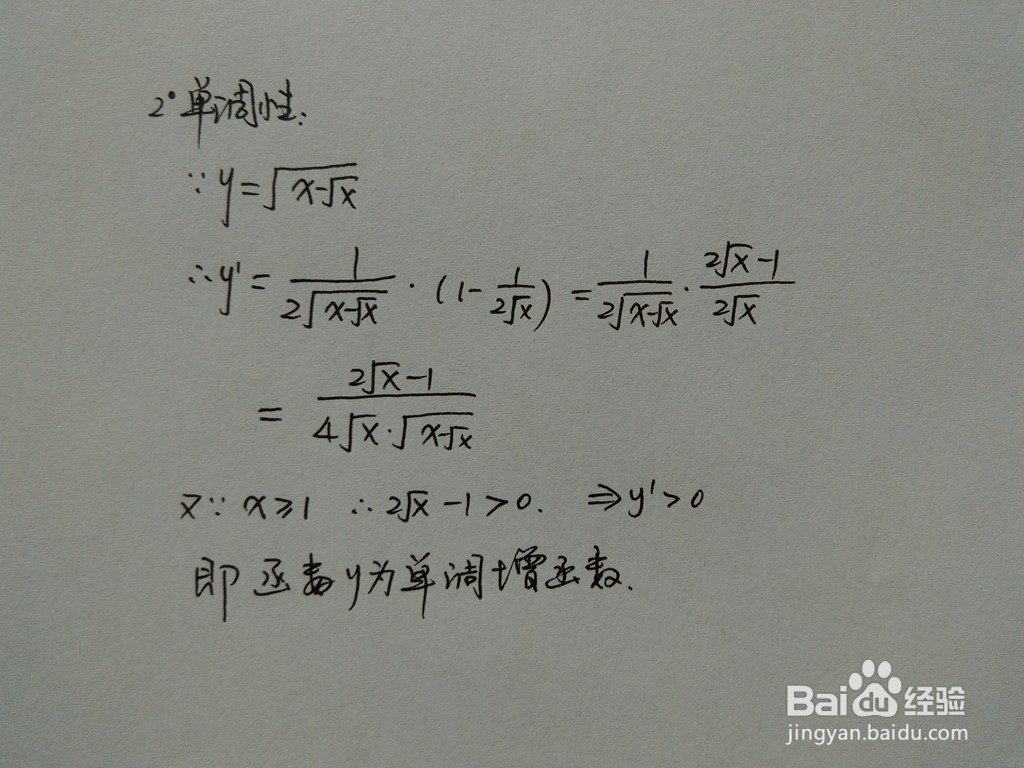 2° 单调性:
∵ y = √(x-√x)
∴ y' = 1/(2√(x-√x)) · (1 - 1/(2√x)) = 1/(2√(x-√x)) · (2√x-1)/(2√x)
= (2√x-1)/(4√x·√(x-√x))
又∵ x≥1 ∴ 2√x -1>0. ⇒ y'>0
即函数y为单调增函数.
Baidu经验
jingyan.baidu.com